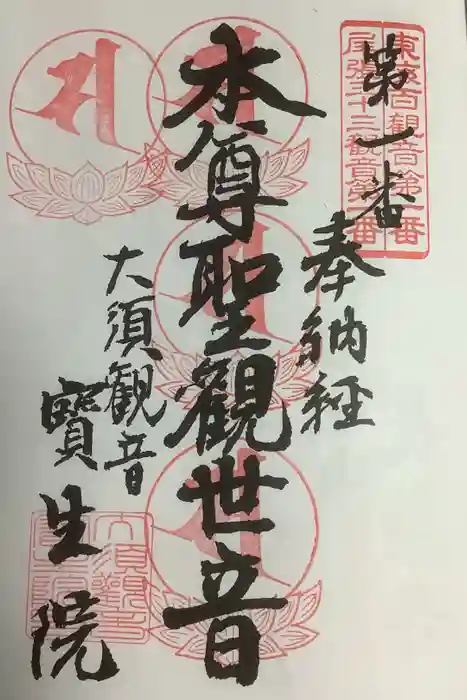 東海百観音第一番
尾張三十三観音第一番
第一番
奉納経
本尊聖觀世音
大須観音
寶生院